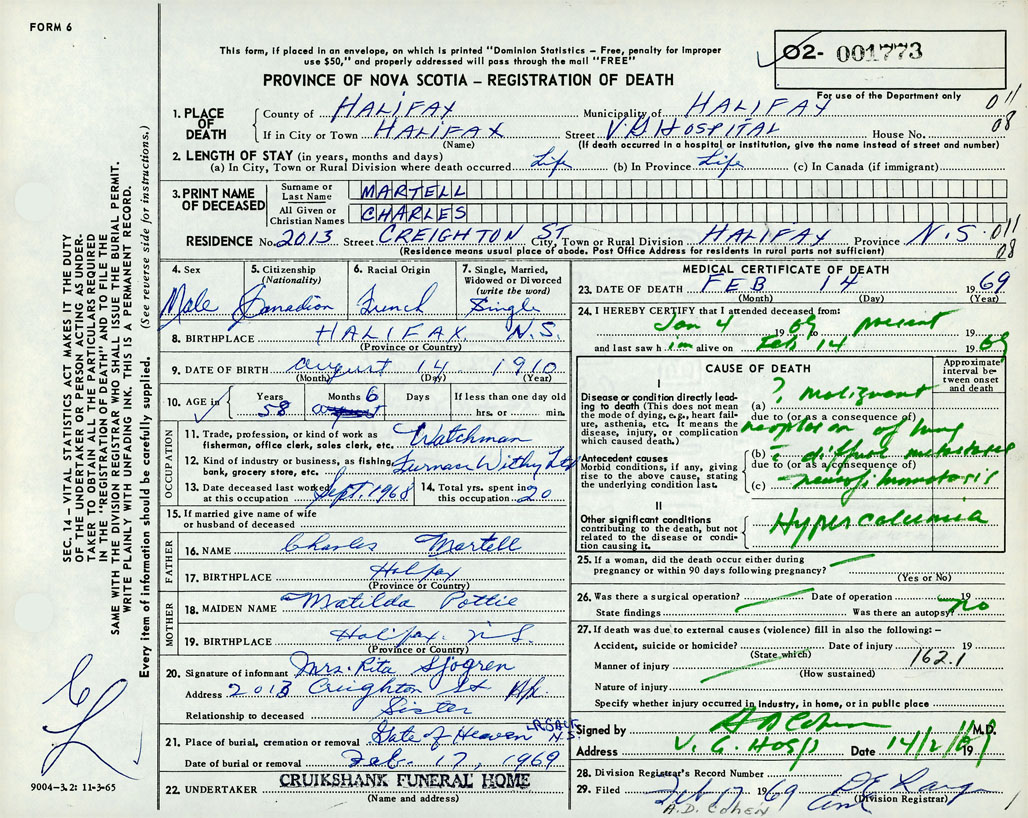 FORM 6
This form, if placed in an envelope, on which is printed "Dominion Statistics – Free, penalty for improper
use $50," and properly addressed will pass through the mail "FREE"
PROVINCE OF NOVA SCOTIA – REGISTRATION OF DEATH
02- 001773
For use of the Department only
011
08
1. PLACE OF DEATH
County of HALIFAX Municipality of HALIFAX
If in City or Town HALIFAX Street V.G HOSPITAL House No.
(Name) (If death occurred in a hospital or institution, give the name instead of street and number)
2. LENGTH OF STAY (in years, months and days)
(a) In City, Town or Rural Division where death occurred Life (b) In Province Life (c) In Canada (if immigrant)
3. PRINT NAME OF DECEASED
Surname or Last Name MARTELL
All Given or Christian Names CHARLES
RESIDENCE No. 2013 Street CREIGHTON ST City, Town or Rural Division HALIFAX Province N.S.
011
08
(Residence means usual place of abode. Post Office Address for residents in rural parts not sufficient)
4. Sex
Male
5. Citizenship
(Nationality)
Canadian
6. Racial Origin
French
7. Single, Married,
Widowed or Divorced
(write the word)
Single
8. BIRTHPLACE HALIFAX N.S.
(Province or Country)
9. DATE OF BIRTH August 14 1910
(Month) (Day) (Year)
10. AGE in Years 58 Months 6 Days If less than one day old
hrs. or min.
OCCUPATION
11. Trade, profession, or kind of work as
fisherman, office clerk, sales clerk, etc. Watchman
12. Kind of industry or business, as fishing,
bank, grocery store, etc. Furness Withy Ltd
13. Date deceased last worked
at this occupation Sept. 1968
14. Total yrs. spent in
this occupation 20
15. If married give name of wife
or husband of deceased
FATHER
16. NAME Charles Martell
17. BIRTHPLACE Halifax
(Province or Country)
MOTHER
18. MAIDEN NAME Matilda Pottie
19. BIRTHPLACE Halifax N.S.
(Province or Country)
20. Signature of informant Mrs. Rita Sjogren
Address 2013 Creighton St Hfx
Relationship to deceased Sister
21. Place of burial, cremation or removal Gate of Heaven
N.S.
Date of burial or removal Feb. 17, 1969
22. UNDERTAKER CRUIKSHANK FUNERAL HOME
(Name and address)
MEDICAL CERTIFICATE OF DEATH
23. DATE OF DEATH FEB 14 1969
(Month) (Day) (Year)
24. I HEREBY CERTIFY that I attended deceased from:
Jan 4 1969 to present 19
and last saw h im alive on Feb 14 1969
CAUSE OF DEATH
Approximate
interval be-
tween onset
and death
I
Disease or condition directly lead-
ing to death (This does not mean
the mode of dying, e.g., heart fail-
ure, asthenia, etc. It means the
disease, injury, or complication
which caused death.)
(a) ? malignant
due to (or as a consequence of)
neoplasm of lung
Antecedent causes
Morbid conditions, if any, giving
rise to the above cause, stating
the underlying condition last.
(b) c̄ diffuse metastases
due to (or as a consequence of)
(c) neurofibromatosis
II
Other significant conditions
contributing to the death, but not
related to the disease or condi-
tion causing it.
Hypercalcemia
25. If a woman, did the death occur either during
pregnancy or within 90 days following pregnancy?
(Yes or No)
26. Was there a surgical operation? Date of operation 19
State findings Was there an autopsy? No
27. If death was due to external causes (violence) fill in also the following: –
Accident, suicide or homicide? Date of injury 19
(State which)
162.1
Manner of injury
(How sustained)
Nature of injury
Specify whether injury occurred in industry, in home, or in public place
Signed by A D Cohen M.D.
Address V. G. Hosp Date 14/2/1969
28. Division Registrar's Record Number
29. Filed Feb 17 1969
(Division Registrar)
A.D. COHEN
SEC. 14 – VITAL STATISTICS ACT MAKES IT THE DUTY
OF THE UNDERTAKER OR PERSON ACTING AS UNDER-
TAKER TO OBTAIN ALL THE PARTICULARS REQUIRED
IN THE "REGISTRATION OF DEATH" AND TO FILE THE
SAME WITH THE DIVISION REGISTRAR WHO SHALL ISSUE THE BURIAL PERMIT.
WRITE PLAINLY WITH UNFADING INK. THIS IS A PERMANENT RECORD.
Every item of information should be carefully supplied. (See reverse side for instructions.)
9004-3.2: 11-3-65